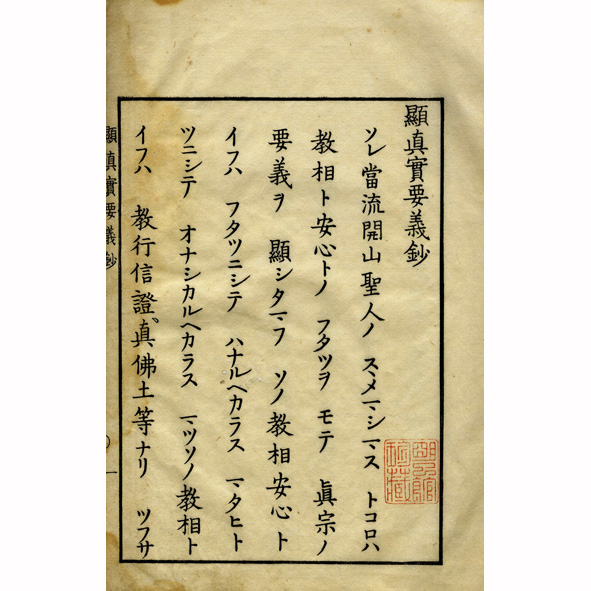 顯真實要義鈔
ソレ當流開山聖人ノ スヽメマシマス トコロハ
教相ト安心トノ フタツヲ モテ 眞宗ノ
要義ヲ 顯シタマフ ソノ教相安心ト
イフハ フタツニシテ ハナルヘカラス マタヒト
ツニシテ オナシカルヘカラス マツソノ教相ト
イフハ 教行信證、真佛土等ナリ ツフサ
顯真實要義鈔
一